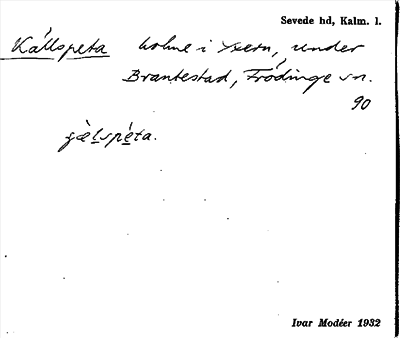 Sevede hd, Kalm. l.
Kållspeta holme i Yxern, under
Brantestad, Frödinge sn.
90
gæ̀lspéta.
Ivar Modéer 1932